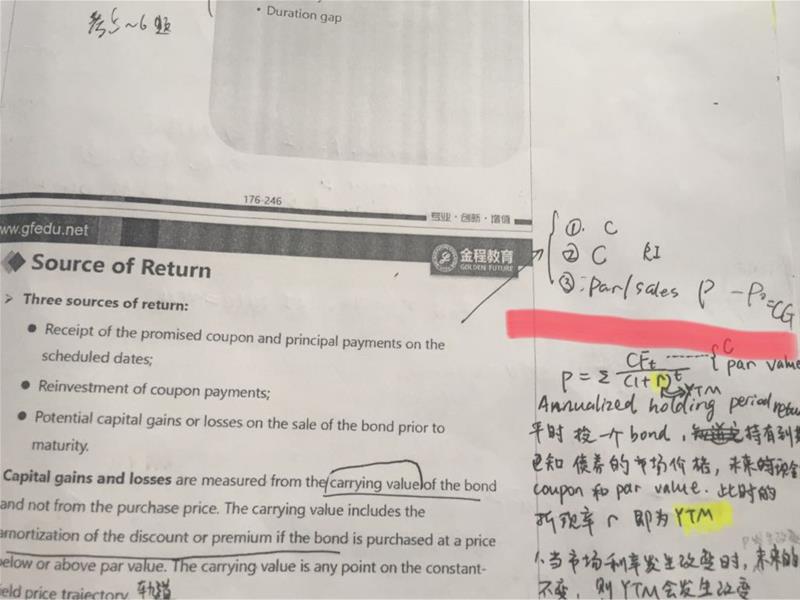 考点~6题
• Duration gap
176-246
专业·创新·增值
www.gfedu.net
金程教育
GOLDEN FUTURE
Source of Return
Three sources of return:
Receipt of the promised coupon and principal payments on the
scheduled dates;
Reinvestment of coupon payments;
Potential capital gains or losses on the sale of the bond prior to
maturity.
Capital gains and losses are measured from the carrying value of the bond
and not from the purchase price. The carrying value includes the
amortization of the discount or premium if the bond is purchased at a price
below or above par value. The carrying value is any point on the constant-
ield price trajectory. 轨道
①. C
② C RI
③: par/sales P - P₀=CG
P = Σ CFt/(1+r)^t { C
par value
YTM
Annualized holding period return
平时投一个 bond, 持有到期
已知债券的市场价格, 未来的现金
coupon 和 par value. 此时的
折现率 r 即为 YTM
1.当市场利率发生改变时, 未来的
不变, 则 YTM 会发生改变